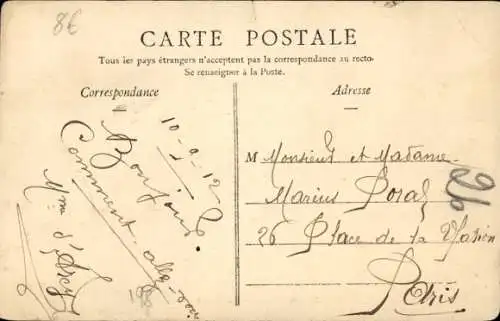 8€
CARTE POSTALE
Tous les pays étrangers n'acceptent pas la correspondance au recto.
Se renseigner à la Poste.
Correspondance
Adresse
10-9-12
Bonjour
Comment allez
Mme d'
M Monsieur et Madame
Marius
26 Place de la Nation
Paris